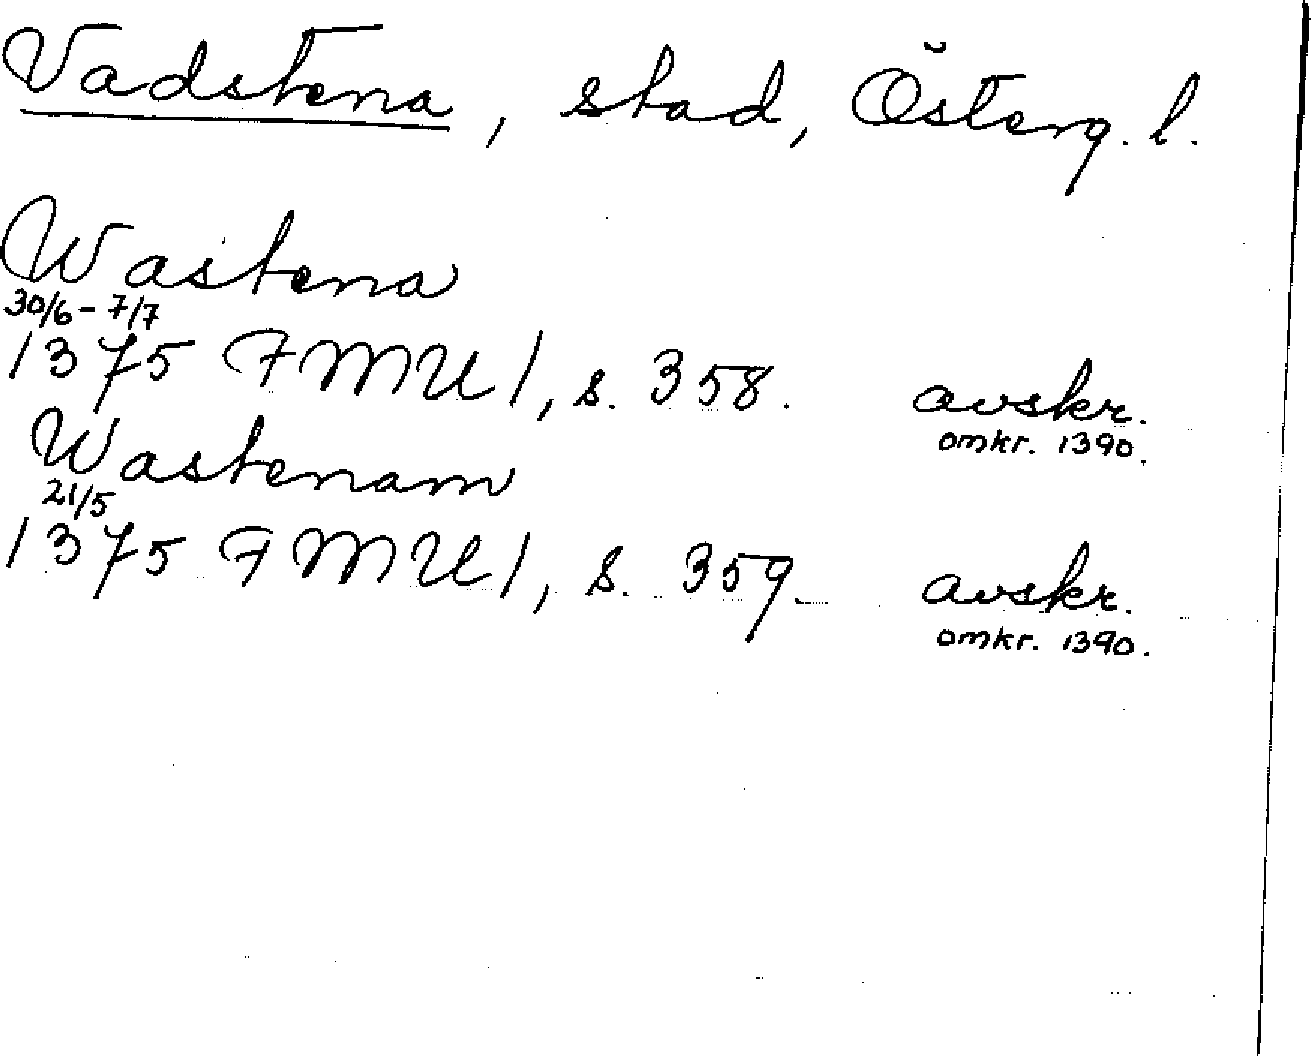 Vadstena, stad, Österg. l.
Wastena
30/6 - 7/7
1375 FMU 1, s. 358. avskr.
omkr. 1390.
Wastenam
21/5
1375 FMU 1, s. 359. avskr.
omkr. 1390.